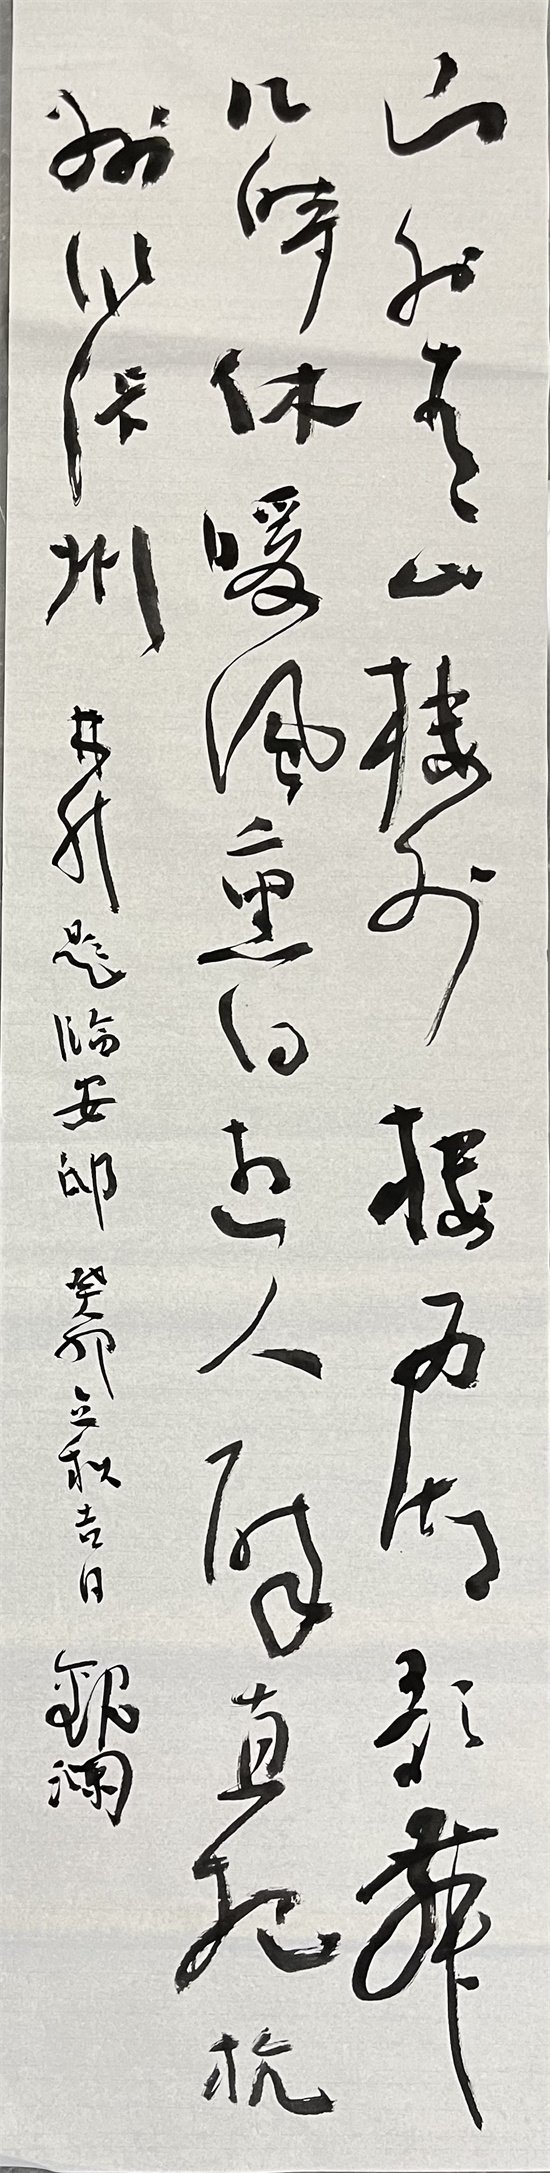 山外青山楼外楼西湖歌舞
几时休暖风熏得游人醉直把杭
州作汴州 林升题临安邸 癸卯立秋吉日